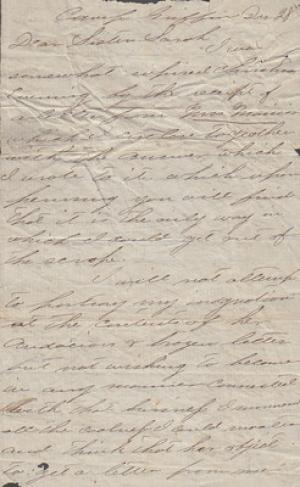 Camp Griffin Dec 28
Dear Sister Sarah
I was
somewhat surprised Christmas
Evening by the receipt of
a letter from
which I enclose together
with the answer which
I wrote to it which upon
perusing you will find
that it is the only way in
which I could get out of
the scrape.
I will not attempt
to portray my indignation
at the contents of her
audacious & letter
but not wishing to become
in any manner connected
with that business I
all the I could
and think that her object
to get a letter from me